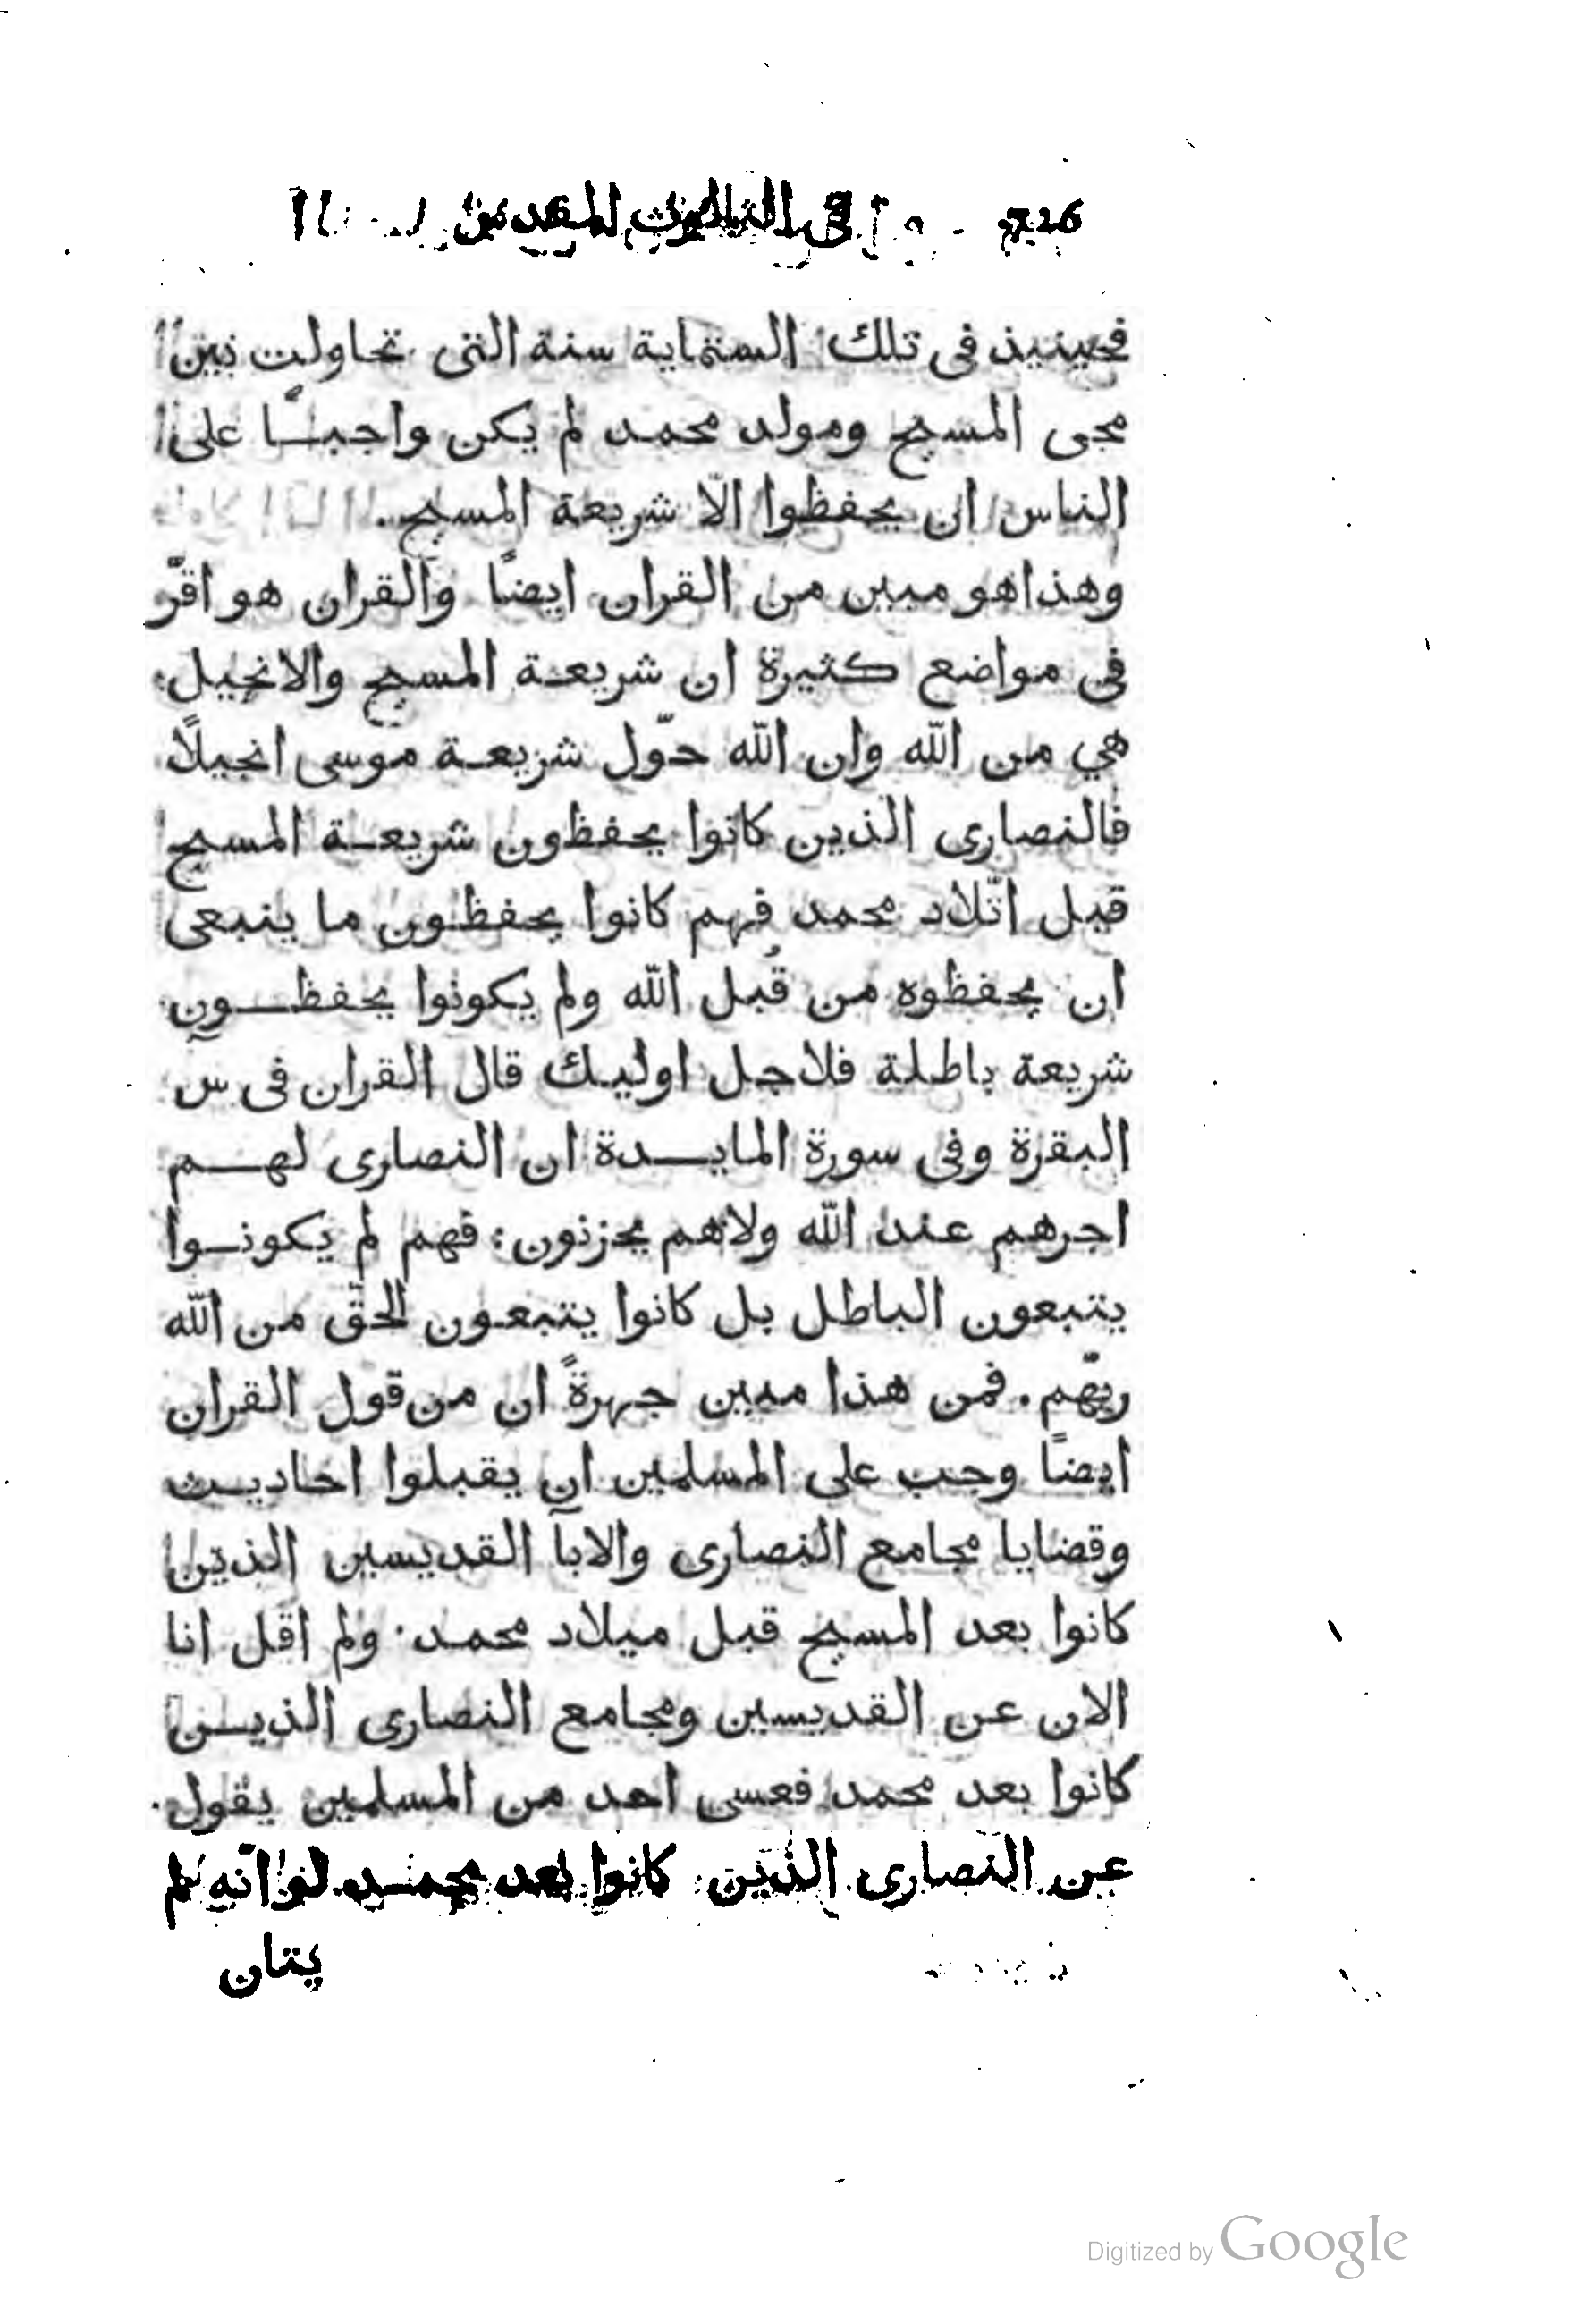 726 في الثالوث المقدس
فحينيذ في تلك الستماية سنة التي تحاولت بين
مجى المسيح ومولد محمد لم يكن واجبًا على
الناس ان يحفظوا الّا شريعة المسيح.
وهذا هو مبين من القران ايضًا والقران هو اقرّ
في مواضع كثيرة ان شريعة المسيح والانجيل
هي من اللّه وان اللّه حوّل شريعة موسى انجيلًا
فالنصارى الذين كانوا يحفظون شريعة المسيح
قبل اتّلاد محمد فهم كانوا يحفظون ما ينبعى
ان يحفظوه من قُبل اللّه ولم يكونوا يحفظون
شريعة باطلة فلاجل اوليك قال القران في س
البقرة وفى سورة المايدة ان النصارى لهم
اجرهم عند اللّه ولاهم يحزنون: فهم لم يكونوا
يتبعون الباطل بل كانوا يتبعون الحق من اللّه
ربّهم. فمن هذا مبين جهرةً ان من قول القران
ايضًا وجب على المسلمين ان يقبلوا احاديث
وقضايا مجامع النصارى والابآ القديسين الذين
كانوا بعد المسيح قبل ميلاد محمد. ولم اقل انا
الان عن القديسين ومجامع النصارى الذين
كانوا بعد محمد فعسى احد من المسلمين يقول.
عن النصارى الذين كانوا بعد محمد لو انّه لم
يتان
Digitized by Google